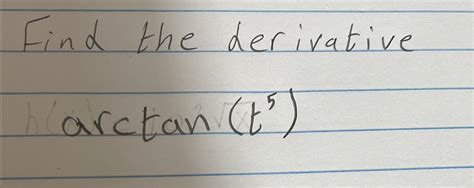 Find the derivative
arctan (t⁵)